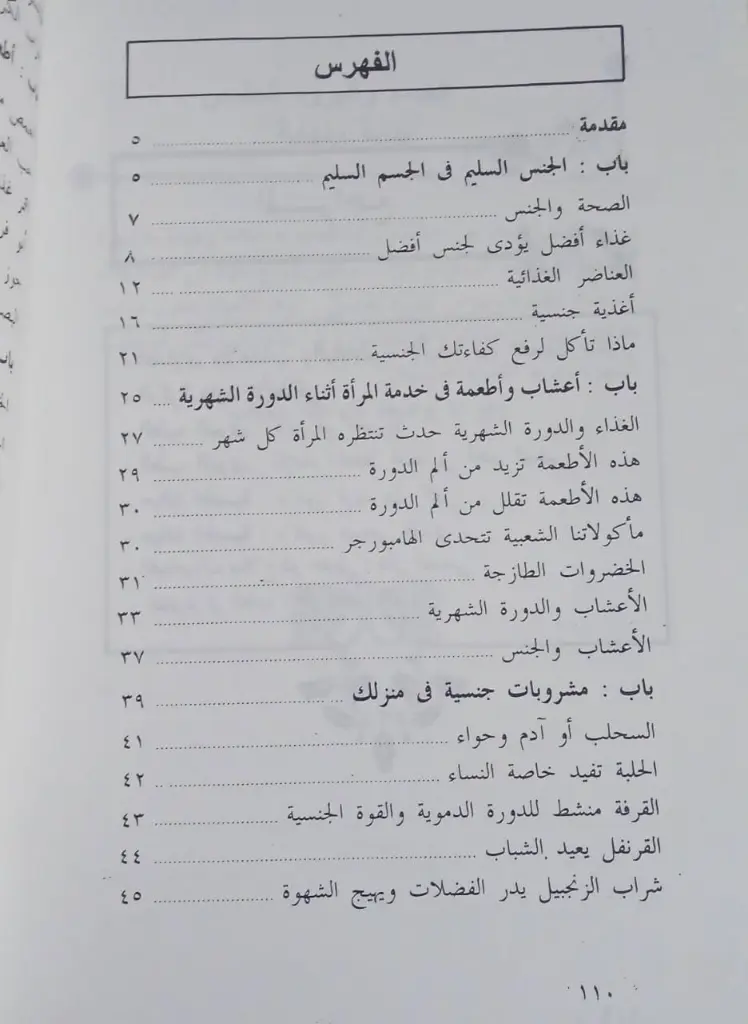 الفهرس
مقدمة ٥
باب : الجنس السليم فى الجسم السليم ٥
الصحة والجنس ٧
غذاء أفضل يؤدى لجنس أفضل ٨
العناضر الغذائية ١٢
أغذية جنسية ١٦
ماذا تأكل لرفع كفاءتك الجنسية ٢١
باب : أعشاب وأطعمة فى خدمة المرأة أثناء الدورة الشهرية ٢٥
الغذاء والدورة الشهرية حدث تنتظره المرأة كل شهر ٢٧
هذه الأطعمة تزيد من ألم الدورة ٢٩
هذه الأطعمة تقلل من ألم الدورة ٣٠
مأكولاتنا الشعبية تتحدى الهامبورجر ٣٠
الخضروات الطازجة ٣١
الأعشاب والدورة الشهرية ٣٣
الأعشاب والجنس ٣٧
باب : مشروبات جنسية فى منزلك ٣٩
السحلب أو آدم وحواء ٤١
الحلبة تفيد خاصة النساء ٤٢
القرفة منشط للدورة الدموية والقوة الجنسية ٤٣
القرنفل يعيد الشباب ٤٤
شراب الزنجبيل يدر الفضلات ويهيج الشهوة ٤٥
١١٠